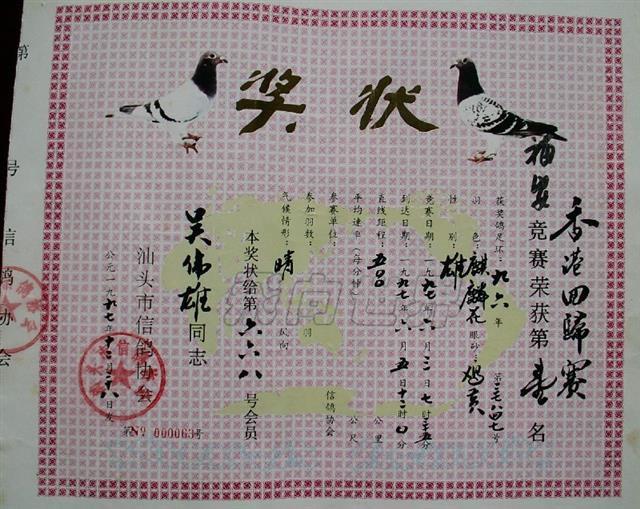 奖状
香港回歸赛
福安竞赛荣获第壹名
获奖鸽足环:九六年
羽色:麒麟花 眼砂:鸡黄
性别:雄
竞赛日期:一九九七年六月三日七时三五分
到达日期:一九九七年六月五日十二时
直线距程:五〇〇公里
平均速率(每分钟)公尺
参赛单位:信鸽协会
参加羽数:羽
气候情形:晴 风向
本奖状给第六六八号会员
吴伟雄同志
汕头市信鸽协会
公元一九九七年十二月二十八日发
第 No 000063号
第
号
信鸽协会